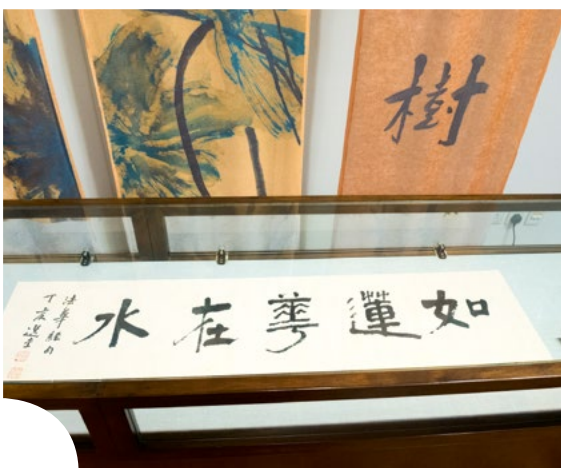 樹
如蓮華在水
法華經句
丁亥選堂